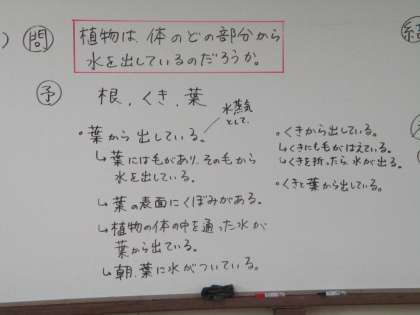 問
植物は、体のどの部分から
水を出しているのだろうか。
予
根、くき、葉
・葉から出している。
水蒸気
として、
↳葉には毛があり、その毛から
水を出している。
↳葉の表面にくぼみがある。
↳植物の体の中を通った水が
葉から出ている。
↳朝、葉に水がついている。
・くきから出している。
↳くきにも毛がはえている。
↳くきを折ったら水が出る。
・くきと葉から出している。